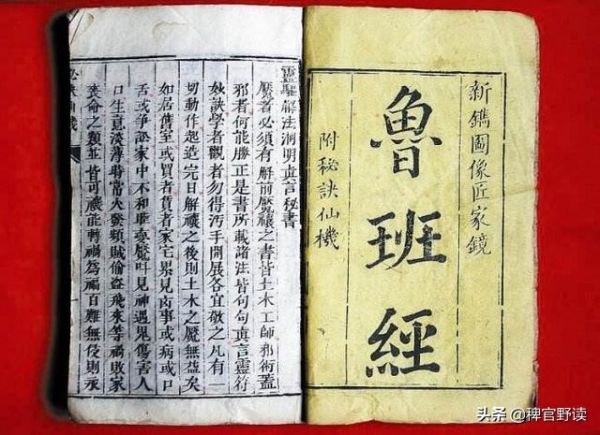 新鐫圖像匠家鏡
魯班經
附秘訣仙機
靈驅解法洞明真言秘書
魘者必須有解前魘禳之書皆土木工師邪術蓋
邪者何能勝正是書所載諸法皆句句真言靈符
妙訣學者觀者勿得汚手開展各宜敬之凡有一
切動作起造完日解禳之後則土木之魘無益矣
如居舊室或買者賃者家宅累見凶事或病或口
舌或爭訟家中不和睡夢魘叫見神遇鬼傷害人
口生意淡薄時常火燹頻賊偷盜飛來等禍敗家
喪命之類並皆可禳能轉禍為福百難無侵則永
头条 @稗官野读